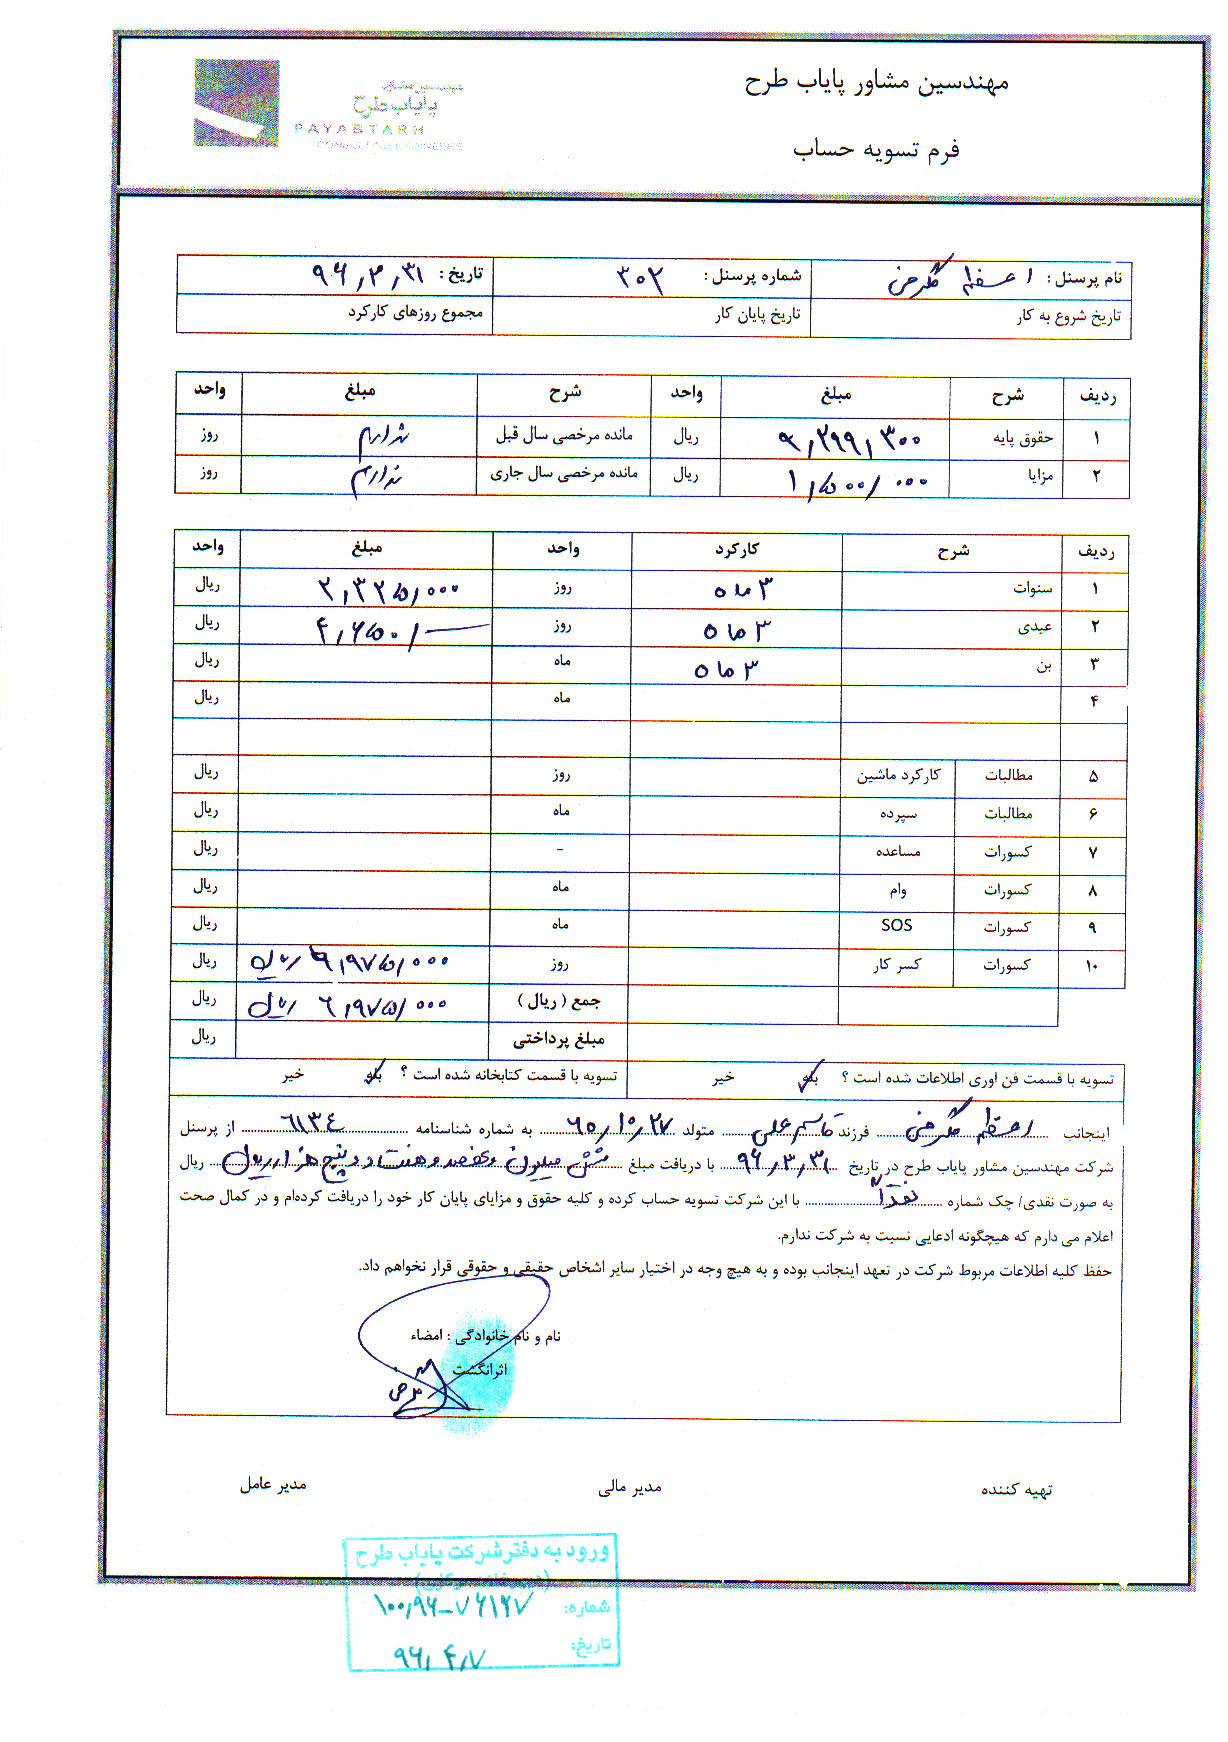 مهندسین مشاور پایاب طرح
مهندسین مشاور
پایاب طرح
PAYABTARH
CONSULTING ENGINEERS
فرم تسویه حساب
نام پرسنل : اعظم گرجی شماره پرسنل : ۳۰۲ تاریخ : ۹۶,۳,۳۱
تاریخ شروع به کار تاریخ پایان کار مجموع روزهای کارکرد
ردیف شرح مبلغ واحد شرح مبلغ واحد
۱ حقوق پایه ۹,۲۹۹,۳۰۰ ریال مانده مرخصی سال قبل ندارم روز
۲ مزایا ۱,۵۰۰,۰۰۰ ریال مانده مرخصی سال جاری ندارم روز
ردیف شرح کارکرد واحد مبلغ واحد
۱ سنوات ۳ ماه روز ۲,۳۲۵,۰۰۰ ریال
۲ عیدی ۳ ماه روز ۴,۶۵۰,— ریال
۳ بن ۳ ماه ماه ریال
۴ ماه ریال
۵ مطالبات کارکرد ماشین روز ریال
۶ مطالبات سپرده ماه ریال
۷ کسورات مساعده - ریال
۸ کسورات وام ماه ریال
۹ کسورات SOS ماه ریال
۱۰ کسورات کسر کار روز ۶,۹۷۵,۰۰۰ ریال ریال
جمع ( ریال ) ۶,۹۷۵,۰۰۰ ریال ریال
مبلغ پرداختی ریال
تسویه با قسمت فن اوری اطلاعات شده است ؟ بله خیر تسویه با قسمت کتابخانه شده است ؟ بله خیر
اینجانب اعظم گرجی فرزند قاسم علی متولد ۶۵,۱۰,۲۷ به شماره شناسنامه ۶۱۳۴ از پرسنل
شرکت مهندسین مشاور پایاب طرح در تاریخ ۹۶,۳,۳۱ با دریافت مبلغ شش میلیون و نهصد و هفتاد و پنج هزار ریال ریال
به صورت نقدی/ چک شماره نقداً با این شرکت تسویه حساب کرده و کلیه حقوق و مزایای پایان کار خود را دریافت کرده‌ام و در کمال صحت
اعلام می دارم که هیچگونه ادعایی نسبت به شرکت ندارم.
حفظ کلیه اطلاعات مربوط شرکت در تعهد اینجانب بوده و به هیچ وجه در اختیار سایر اشخاص حقیقی و حقوقی قرار نخواهم داد.
نام و نام خانوادگی : امضاء
اثرانگشت
گرجی
تهیه کننده مدیر مالی مدیر عامل
ورود به دفتر شرکت پایاب طرح
(دبیرخانه مرکزی)
شماره: ۱۰۰,۹۶-۷۶۱۲۷
تاریخ: ۹۶,۴,۷